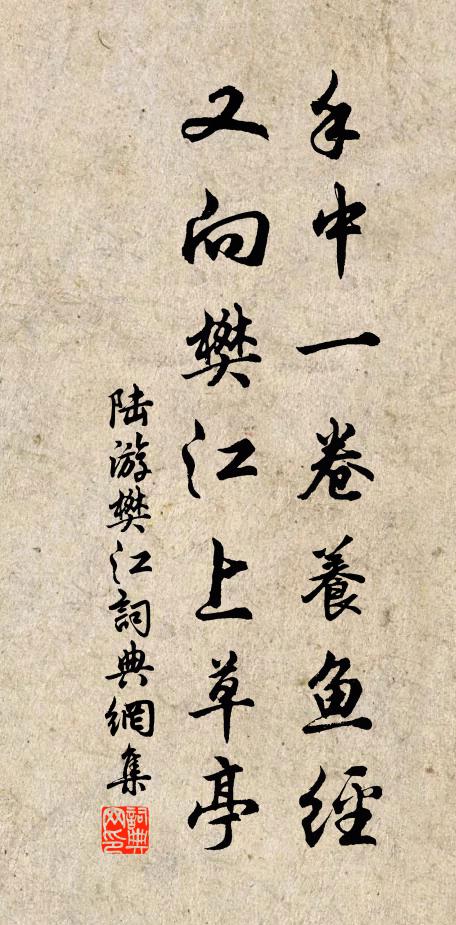 手中一卷養魚經
又向樊江上草亭
陆游樊江詞典網集
詞典网印